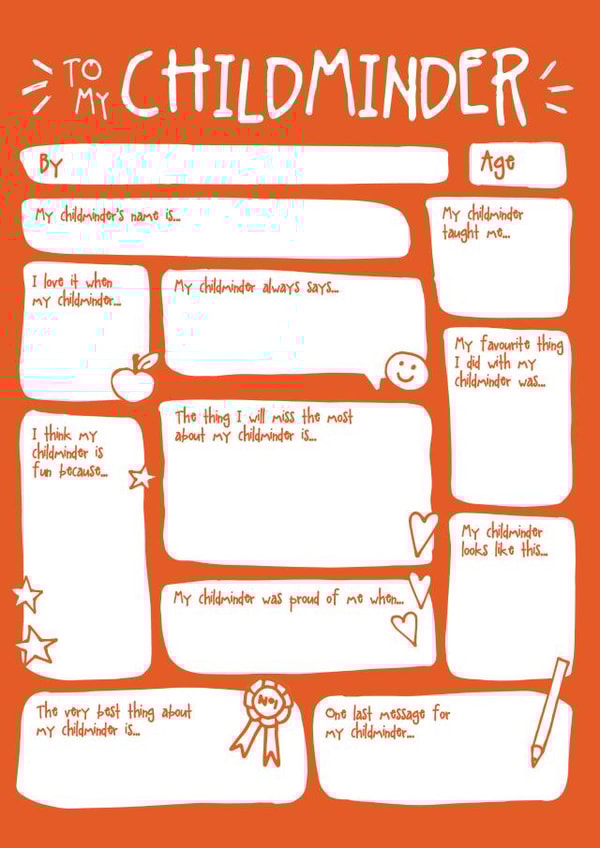 TO
MY CHILDMINDER
By
Age
My childminder's name is...
My childminder
taught me...
I love it when
my childminder...
My childminder always says...
My favourite thing
I did with my
childminder was...
The thing I will miss the most
about my childminder is...
I think my
childminder is
fun because...
My childminder
looks like this...
My childminder was proud of me when...
The very best thing about
my childminder is...
No1
One last message for
my childminder...